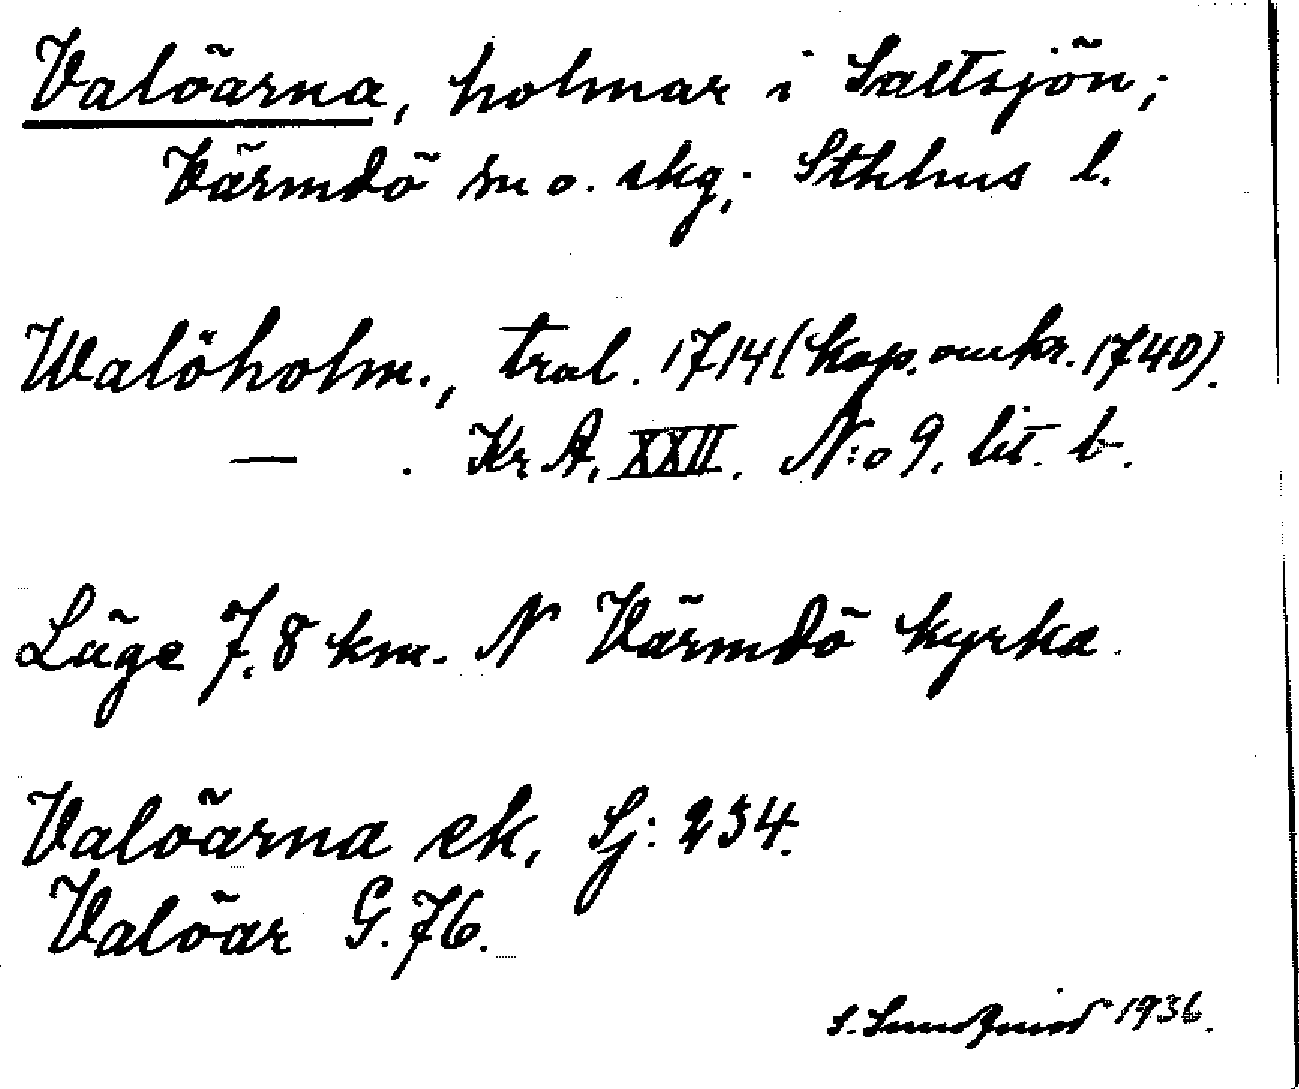 Valöarna, holmar i Saltsjön;
Värmdö sn o. skg; Sthlms l.
Walöholm., tral. 1714 (kop. omkr. 1740).
— . Kr. A. XXII. N:o 9. lit. b.
Läge 7.8 km. N Värmdö kyrka.
Valöarna ek, Sj: 234.
Valöar G. 76.
S. Sundquist 1936.